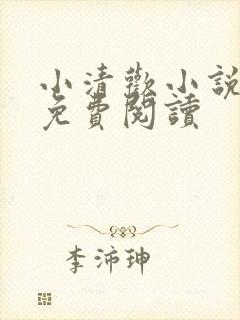 小清歡小說
免費閱讀
李沛珅